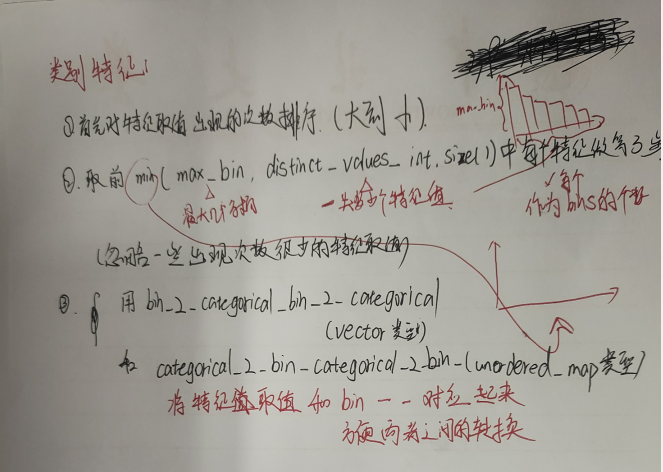 类别特征:
max_bin
①首先对特征取值出现的次数排序.(大到小).
②.取前min(max_bin, distinct_values_int.size())中每个特征做第3类
最大几个方桶
一共有多个特征值
每个
作为bins的个数
(忽略一些出现次数很少的特征取值)
③. 用bin_2_categorical_bin_2_categorical
(vector类型)
和 categorical_2_bin_categorical_2_bin_(unordered_map类型)
将特征值取值和bin一一对应起来
方便两者之间的转换